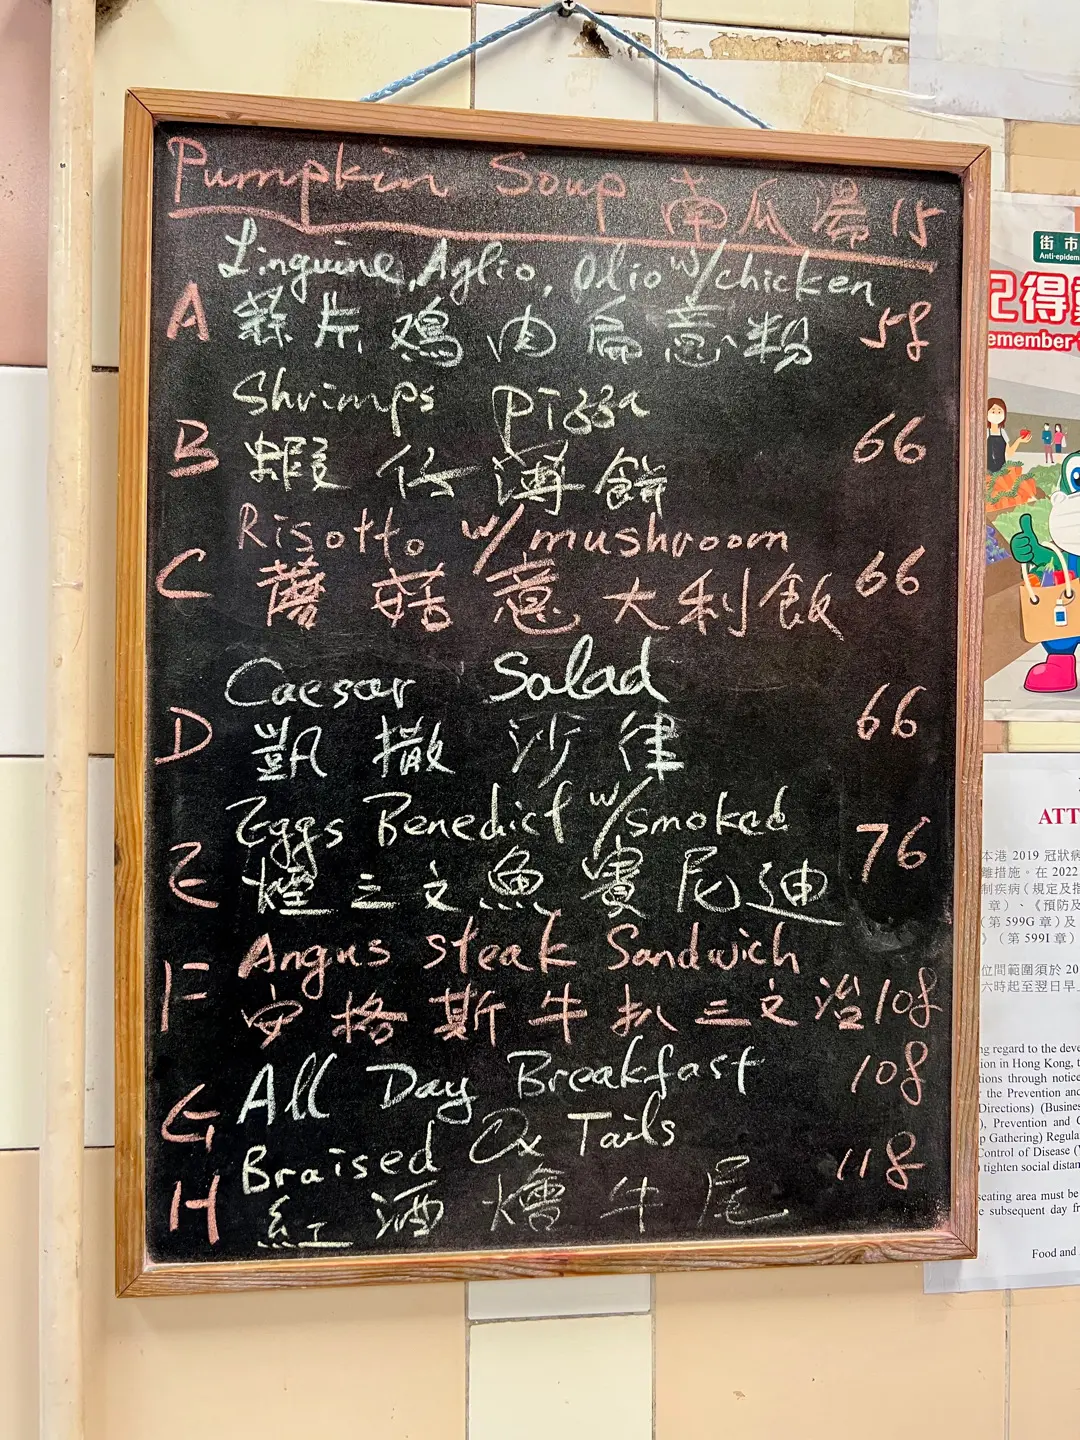 Pumpkin Soup 南瓜湯 15
Linguine, Aglio, Olio w/chicken
A 蒜片鷄肉扁意粉 58
Shrimps Pizza
B 蝦仔薄餅 66
Risotto w/mushroom
C 蘑菇意大利飯 66
Caesar Salad
D 凱撒沙律 66
Eggs Benedict w/smoked
E 煙三文魚賓尼迪 76
Angus steak Sandwich
F 安格斯牛扒三文治 108
G All Day Breakfast 108
Braised Ox Tails
H 紅酒燴牛尾 118
街市
Anti-epidem
記得
emember
ATT
本港 2019 冠狀病
離措施。在 2022
制疾病（規定及指
章）、《預防及
（第 599G 章）及
》（第 599I 章）
位間範圍須於 20
六時起至翌日早上
ng regard to the deve
ion in Hong Kong, t
tions through notice
the Prevention and
Directions) (Busines
), Prevention and C
p Gathering) Regula
Control of Disease (
tighten social distan
seating area must be
e subsequent day fr
Food and